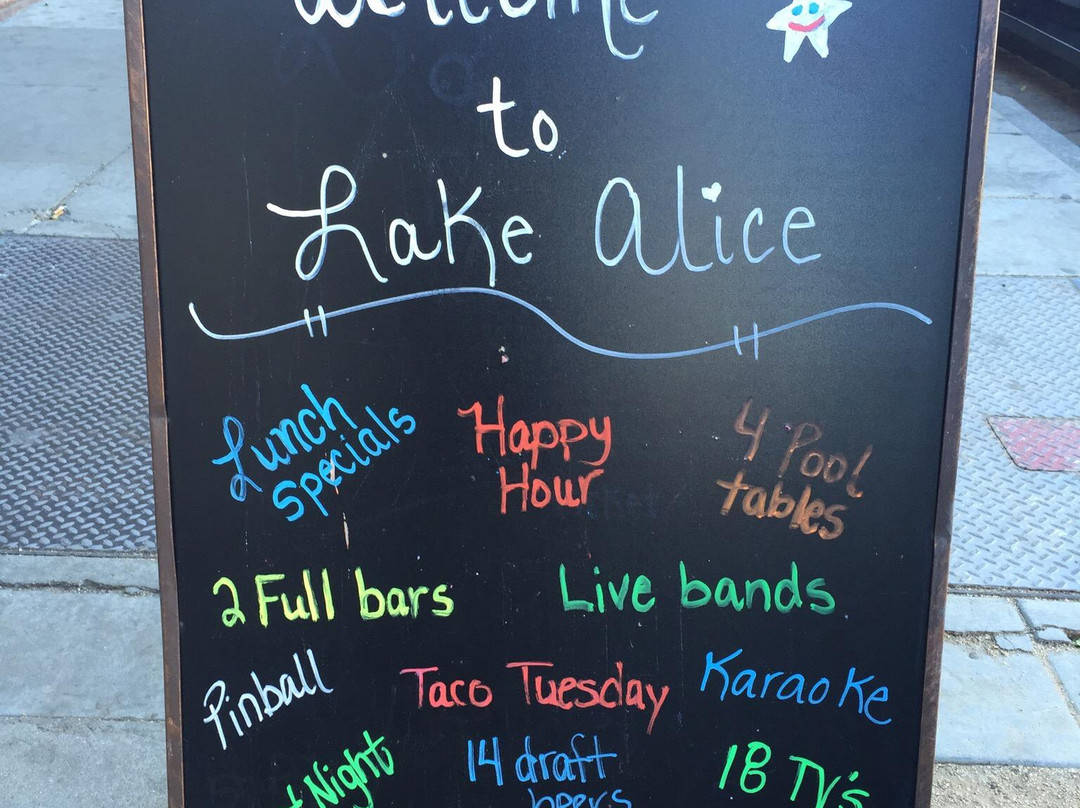 Welcome
to
Lake Alice
Lunch
Specials
Happy
Hour
4 Pool
tables
2 Full bars
Live bands
Pinball
Taco Tuesday
Karaoke
Night
14 draft
beers
18 TV's